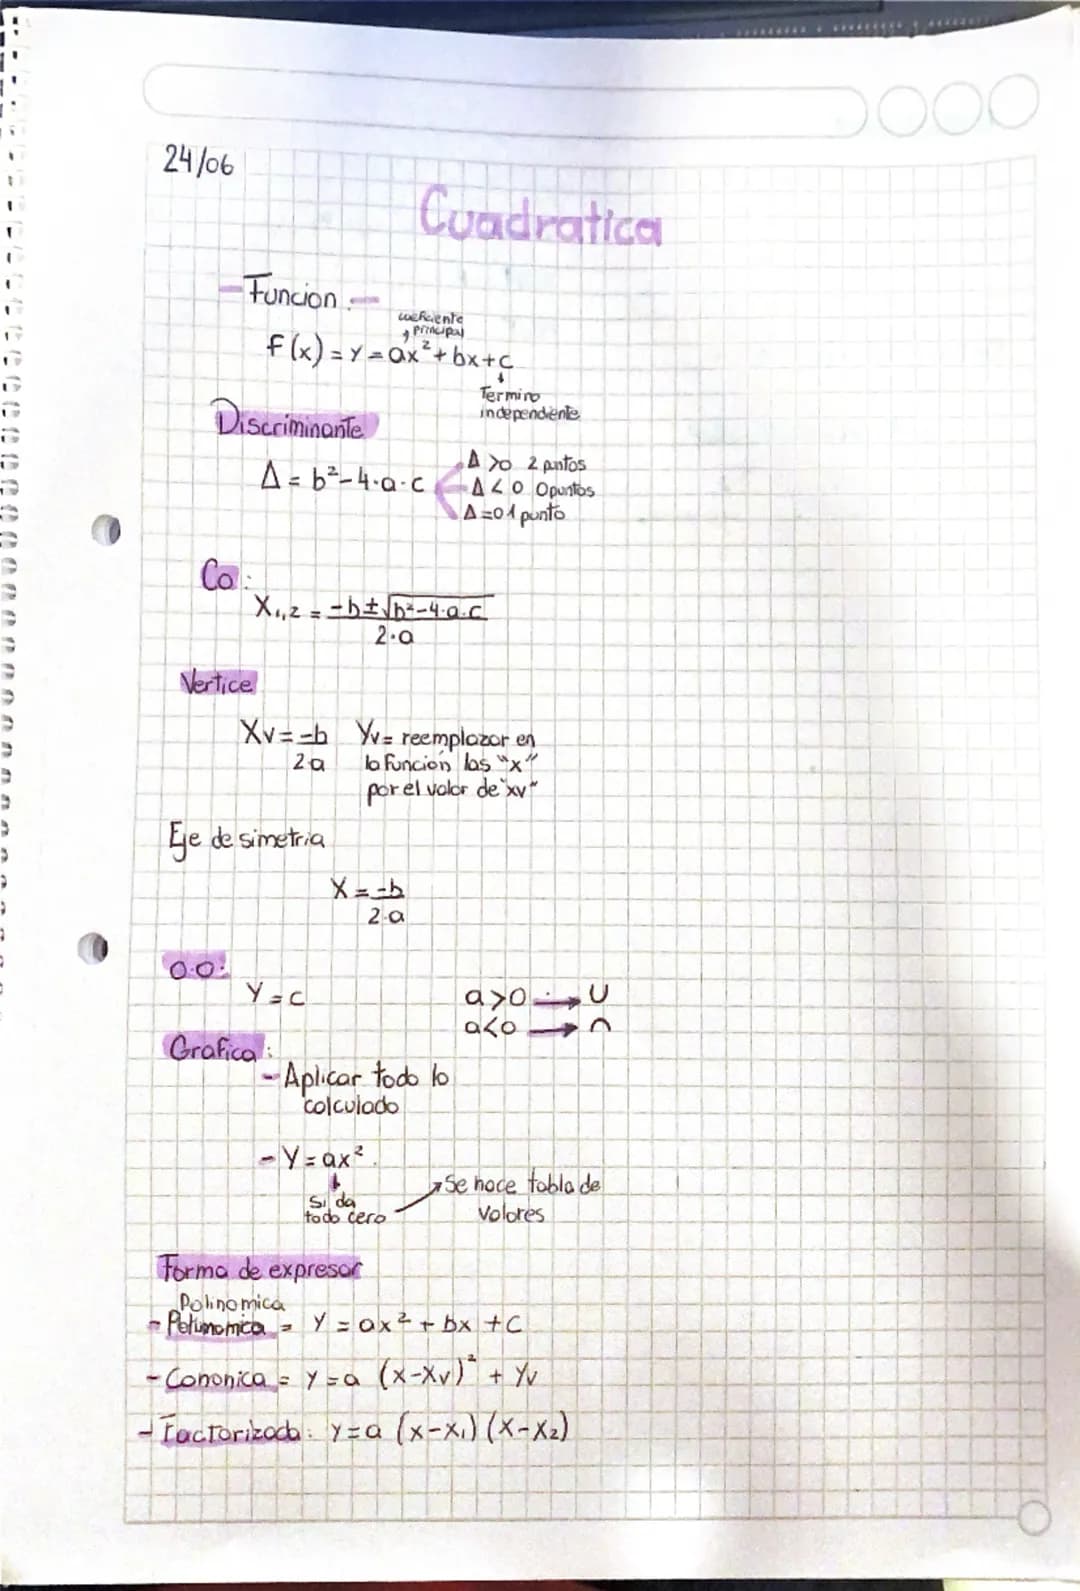 24/06
Cuadratica
- Funcion -
coeficiente
principal
f(x) = y = ax² + bx + c
Termino
independiente
Discriminante
Δ = b² - 4·a·c
Δ > 0 2 puntos
Δ < 0 0 puntos
Δ = 0 1 punto
Co:
X₁,₂ = -b ± √b² - 4·a·c
2·a
Vertice
Xv = -b Yv = reemplazar en
2·a la función las "x"
por el valor de "xv"
Eje de simetria
X = -b
2·a
O.O:
Y = c
a > 0 → ∪
a < 0 → ∩
Grafica:
- Aplicar todo lo
calculado
- Y = ax²
Si da
todo cero
Se hace tabla de
valores
Forma de expresar
Polinomica
- Polinomica = Y = ax² + bx + c
- Cononica = y = a (x - Xv)² + Yv
- Factorizada: y = a (x - x₁) (x - x₂)